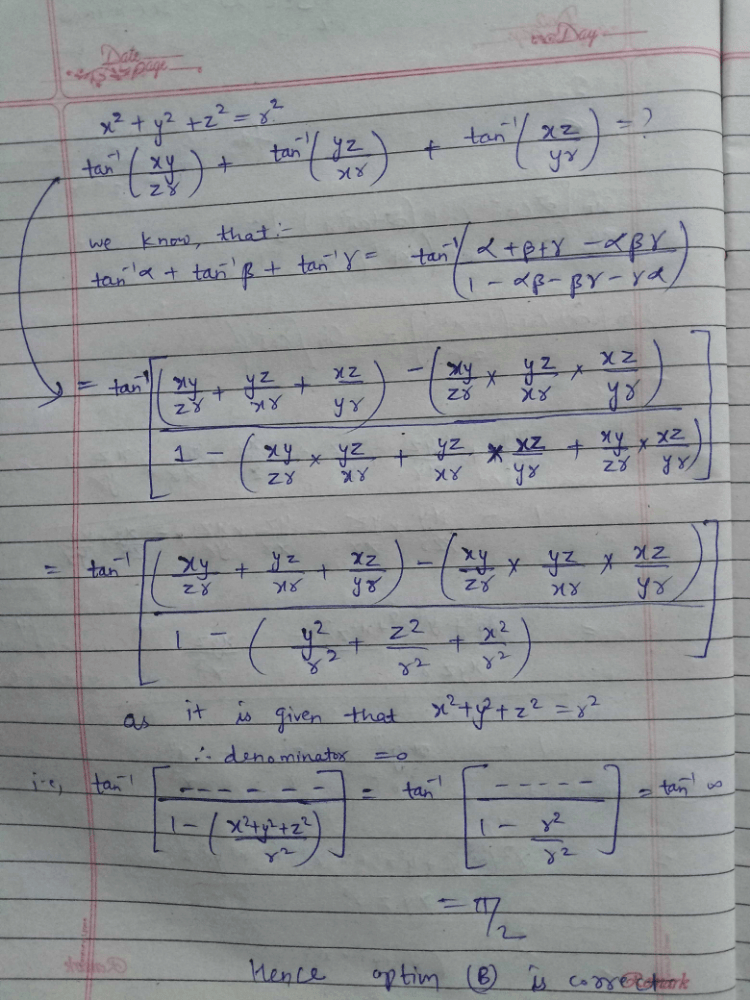 Date
Page
Day
x² + y² + z² = r²
tan⁻¹(xy/zr) + tan⁻¹(yz/xr) + tan⁻¹(xz/yr) = ?
we know, that:-
tan⁻¹α + tan⁻¹β + tan⁻¹γ = tan⁻¹(α+β+γ-αβγ/1-αβ-βγ-γα)
= tan⁻¹[(xy/zr + yz/xr + xz/yr) - (xy/zr × yz/xr × xz/yr) / 1 - (xy/zr × yz/xr + yz/xr × xz/yr + xy/zr × xz/yr)]
= tan⁻¹[(xy/zr + yz/xr + xz/yr) - (xy/zr × yz/xr × xz/yr) / 1 - (y²/r² + z²/r² + x²/r²)]
as it is given that x²+y²+z² = r²
∴ denominator = 0
i.e, tan⁻¹[------ / 1-(x²+y²+z²/r²)] = tan⁻¹[----- / 1 - r²/r²] = tan⁻¹ ∞
= π/2
Hence option (B) is correct